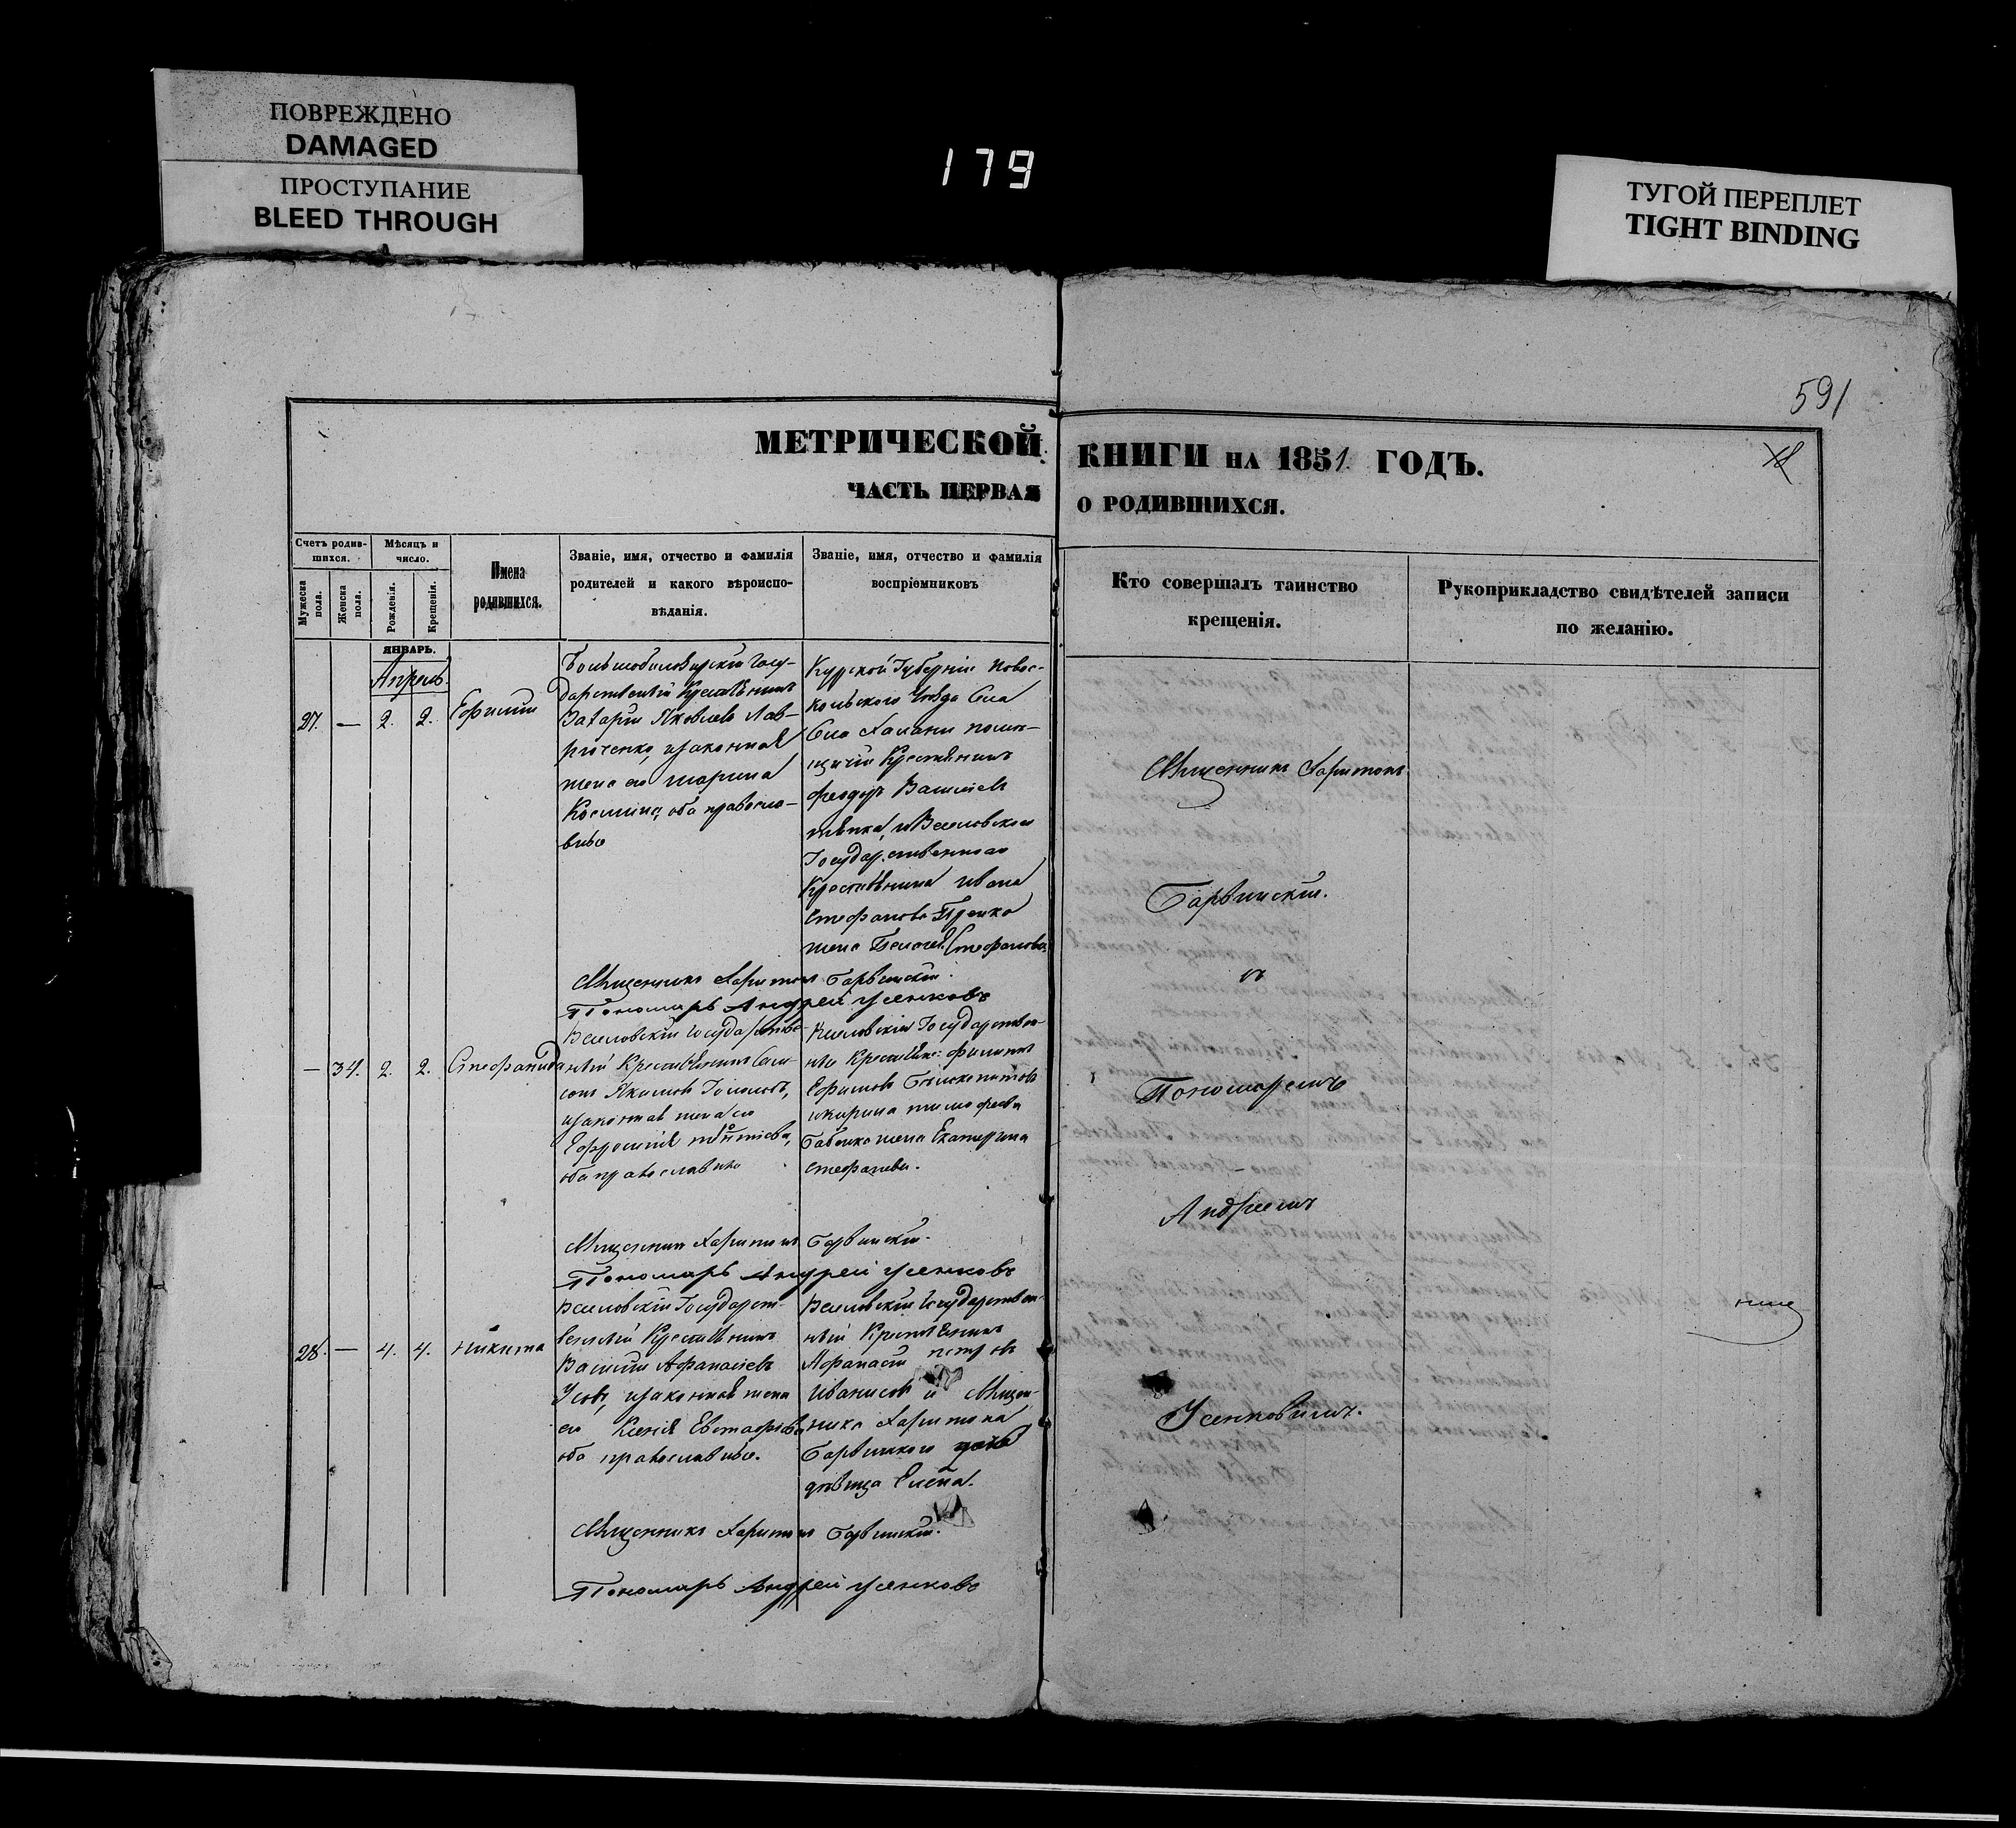 ПОВРЕЖДЕНО
DAMAGED
ПРОСТУПАНИЕ
BLEED THROUGH
179
ТУГОЙ ПЕРЕПЛЕТ
TIGHT BINDING
591
МЕТРИЧЕСКОЙ КНИГИ НА 1851 ГОДЪ.
ЧАСТЬ ПЕРВАЯ О РОДИВШИХСЯ.
Счетъ родив-
шихся.
Мужеска пола.
Женска пола.
Мѣсяцъ и
число.
Рожденія.
Крещенія.
Имена
родившихся.
Званіе, имя, отчество и фамилія
родителей и какого вѣроиспо-
вѣданія.
Званіе, имя, отчество и фамилія
воспріемниковъ
Кто совершалъ таинство
крещенія.
Рукоприкладство свидѣтелей записи
по желанію.
ЯНВАРЬ.
Апрель
27. — 2. 2. Ефимій
Государственный Крестьянинъ
Захарій Яковлевъ Лав-
законная
жена его Марина
Космина, оба правосла-
вные
Курской Губерніи Новос-
кольского Уезда Села
Крестьянинъ
Феодоръ Васильевъ
Государственного
Крестьянина Ивана
Стефанова
жена Стефанова
Священникъ Харитонъ Гарвинскій.
Пономарь Андрей Усенковъ
— 34. 2. 2. Стефанида
Веселовскій Государстве-
нный Крестьянинъ
законная жена его
оба православные
Веселовскій Государствен-
ный Крестьян: Филиппъ
Ефимовъ
и Кирила Тимофеева
жена Екатерина
Стефанова.
Священникъ Харитонъ Гарвинскій.
Пономарь Андрей Усенковъ
28. — 4. 4. Никита
Веселовскій Государст-
венный Крестьянинъ
Василій Афанасіевъ
Усовъ, законная жена
его Ксенія Евстафіева
оба православные.
Веселовскій Государствен-
ный Крестьянинъ
Афанасій Петровъ
Иванисовъ и Священ-
ника Харитона
Гарвинского дочь
девица Елена.
Священникъ Харитонъ Гарвинскій.
Пономарь Андрей Усенковъ
Священникъ Харитонъ
Гарвинскій.
съ
Пономаремъ
Андреемъ
Усенковымъ.